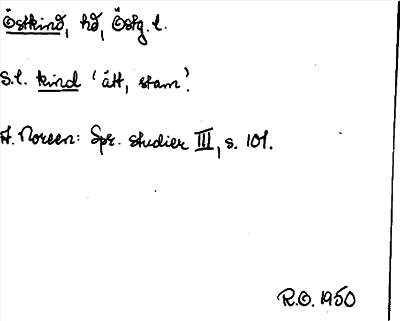 Östkind, hd, Östg. l.
S.l. kind 'ätt, stam'.
A. Noreen: Spr. studier III, s. 101.
R.O. 1950